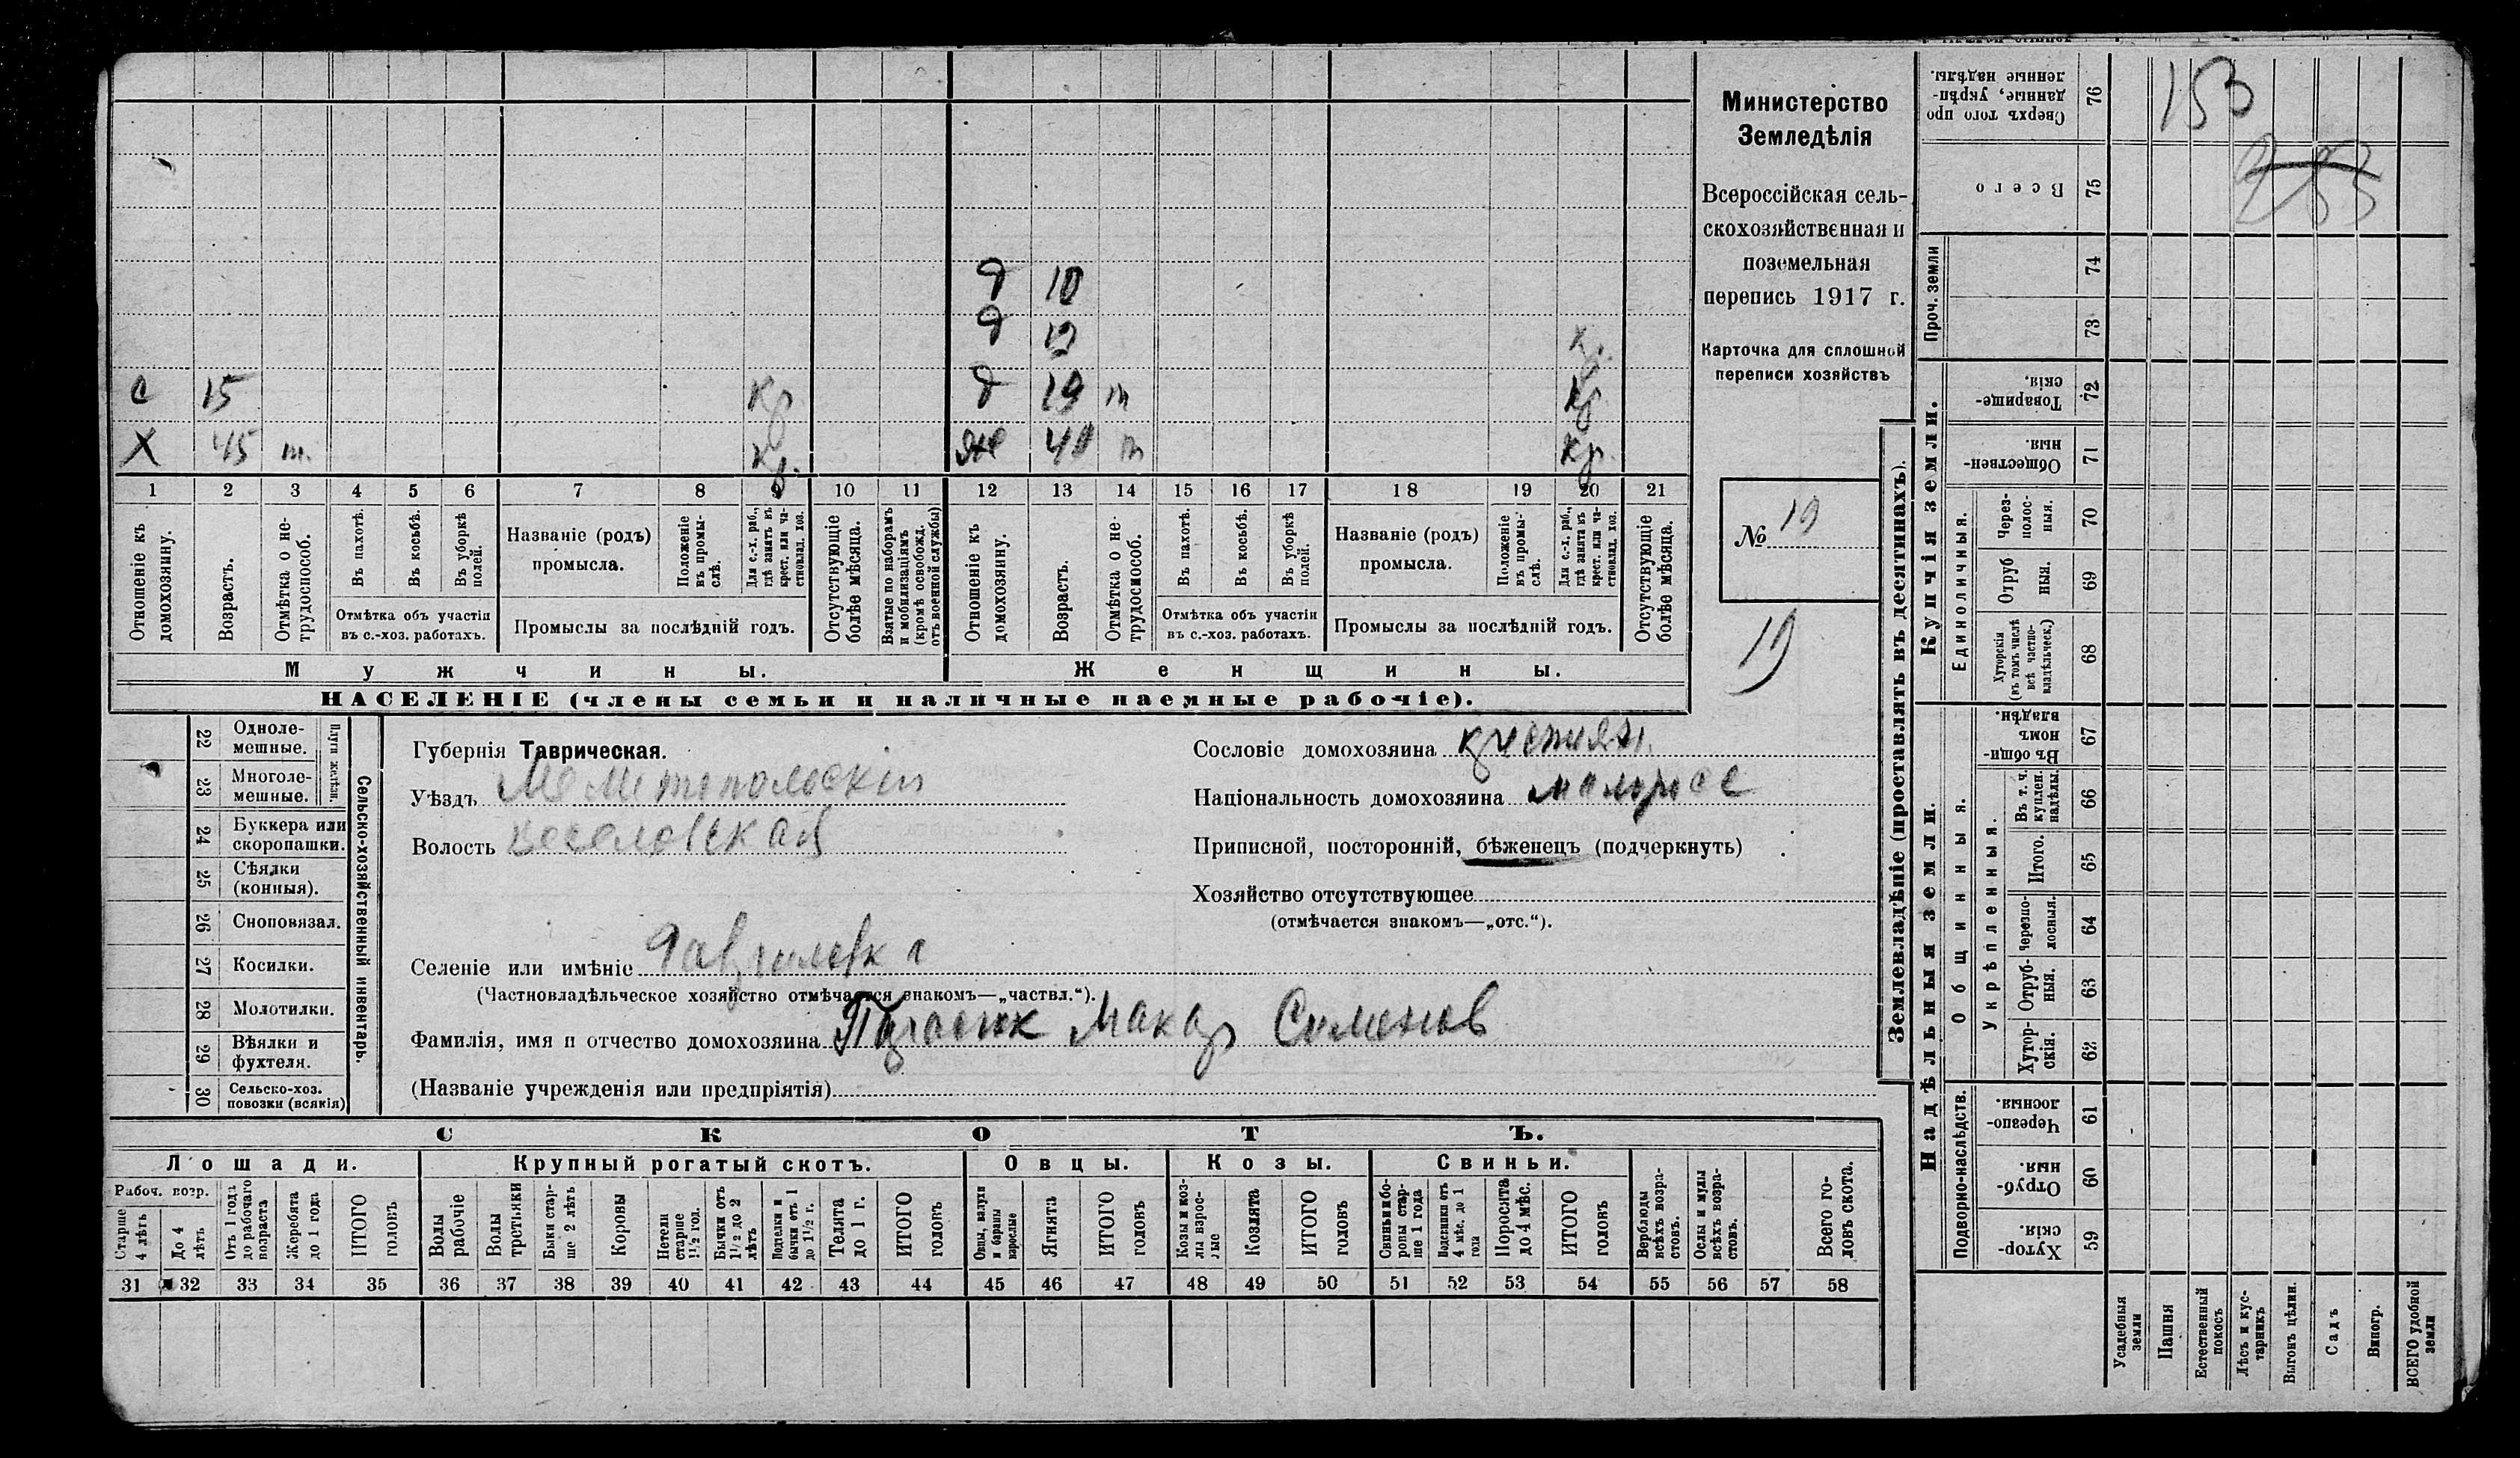 с 15 кр.
х 45 т. кр.
д 10
д 13 к.
д 19 т кр.
же 40 т кр.
1 2 3 4 5 6 7 8 9 10 11 12 13 14 15 16 17 18 19 20 21
Отношеніе къ домохозяину.
Возрастъ.
Отмѣтка о не-трудоспособ.
Въ пахотѣ.
Въ косьбѣ.
Въ уборкѣ полей.
Отмѣтка объ участіи въ с.-хоз. работахъ.
Названіе (родъ) промысла.
Положеніе въ промы-слѣ.
Для с.-х. раб., гдѣ занятъ въ крест. или ча-стновлад. хоз.
Промыслы за послѣдній годъ.
Отсутствующіе болѣе мѣсяца.
Взятые по наборамъ и мобилизаціямъ (кромѣ освобожд. отъ военной службы)
Мужчины.
Отношеніе къ домохозяину.
Возрастъ.
Отмѣтка о не-трудоспособ.
Въ пахотѣ.
Въ косьбѣ.
Въ уборкѣ полей.
Отмѣтка объ участіи въ с.-хоз. работахъ.
Названіе (родъ) промысла.
Положеніе въ промы-слѣ.
Для с.-х. раб., гдѣ занята въ крест. или ча-стновлад. хоз.
Промыслы за послѣдній годъ.
Отсутствующіе болѣе мѣсяца.
Женщины.
НАСЕЛЕНІЕ (члены семьи и наличные наемные рабочіе).
Министерство
Земледѣлія
Всероссійская сель-
скохозяйственная и
поземельная
перепись 1917 г.
Карточка для сплошной
переписи хозяйствъ
№ 19
19
22 Одноле-мешные.
23 Многоле-мешные.
Плуги желѣзн.
24 Буккера или скоропашки.
25 Сѣялки (конныя).
26 Сноповязал.
27 Косилки.
28 Молотилки.
29 Вѣялки и фухтеля.
30 Сельско-хоз. повозки (всякія)
Сельско-хозяйственный инвентарь.
Губернія Таврическая.
Уѣздъ Мелитопольскій
Волость
Селеніе или имѣніе Гавриловка
(Частновладѣльческое хозяйство отмѣчается знакомъ—„частвл.“).
Фамилія, имя и отчество домохозяина Макар Семенов
(Названіе учрежденія или предпріятія)
Сословіе домохозяина крестьян.
Національность домохозяина малорос
Приписной, посторонній, бѣженецъ (подчеркнуть)
Хозяйство отсутствующее
(отмѣчается знакомъ—„отс.“).
СКОТЪ.
Лошади. Крупный рогатый скотъ. Овцы. Козы. Свиньи.
Рабоч. возр.
Старше 4 лѣтъ
До 4 лѣтъ
Отъ 1 года до рабочаго возраста
Жеребята до 1 года
ИТОГО головъ
Волы рабочіе
Волы третьяки
Быки стар-ше 2 лѣтъ
Коровы
Нетели старше 1½ год.
Бычки отъ 1½ до 2 лѣтъ
Подтелки и бычки отъ 1 до 1½ г.
Телята до 1 г.
ИТОГО головъ
Овцы, валухи и бараны взрослые
Ягнята
ИТОГО головъ
Козы и коз-лы взрос-лые
Козлята
ИТОГО головъ
Свиньи и бо-ровы стар-ше 1 года
Подсвинки отъ 4 мѣс. до 1 года
Поросята до 4 мѣс.
ИТОГО головъ
Верблюды всѣхъ возра-стовъ.
Ослы и мулы всѣхъ возра-стовъ.
Всего го-ловъ скота.
31 32 33 34 35 36 37 38 39 40 41 42 43 44 45 46 47 48 49 50 51 52 53 54 55 56 57 58
Землевладѣніе (проставлять въ десятинахъ).
153
253
Сверхъ того про данные, укрѣп-ленные надѣлы. 76
Всего 75
Проч. земли 74 73
Купчія земли.
Товарище-скія. 72
Обществен-ныя. 71
Единоличныя.
Через-полос-ныя. 70
Отруб ныя. 69
Хуторскія (въ томъ числѣ всѣ частно-владѣльческ.) 68
Надѣльныя земли.
Общинныя.
Въ общи-номъ владѣн. 67
Укрѣпленныя.
Въ т. ч. куплен. надѣлы. 66
Итого. 65
Черезпо-лосныя. 64
Отруб-ныя. 63
Хутор-скія. 62
Подворно-наслѣдств.
Черезпо-лосныя. 61
Отруб-ныя. 60
Хутор-скія. 59
Усадебныя земли
Пашня
Естественный покосъ
Лѣсъ и кус-тарникъ
Выгонъ цѣлин.
Садъ
Виногр.
ВСЕГО удобной земли